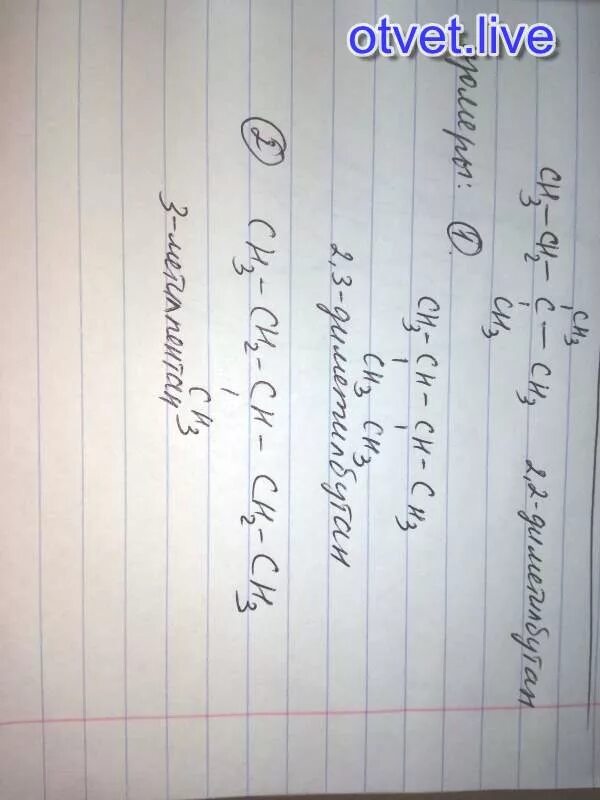 otvet.live
CH3
CH3-CH2-C-CH3 2,2-диметилбутан
CH3
①
CH3-CH-CH-CH3
CH3 CH3
2,3-диметилбутан
② CH3-CH2-CH-CH2-CH3
CH3
3-метилпентан